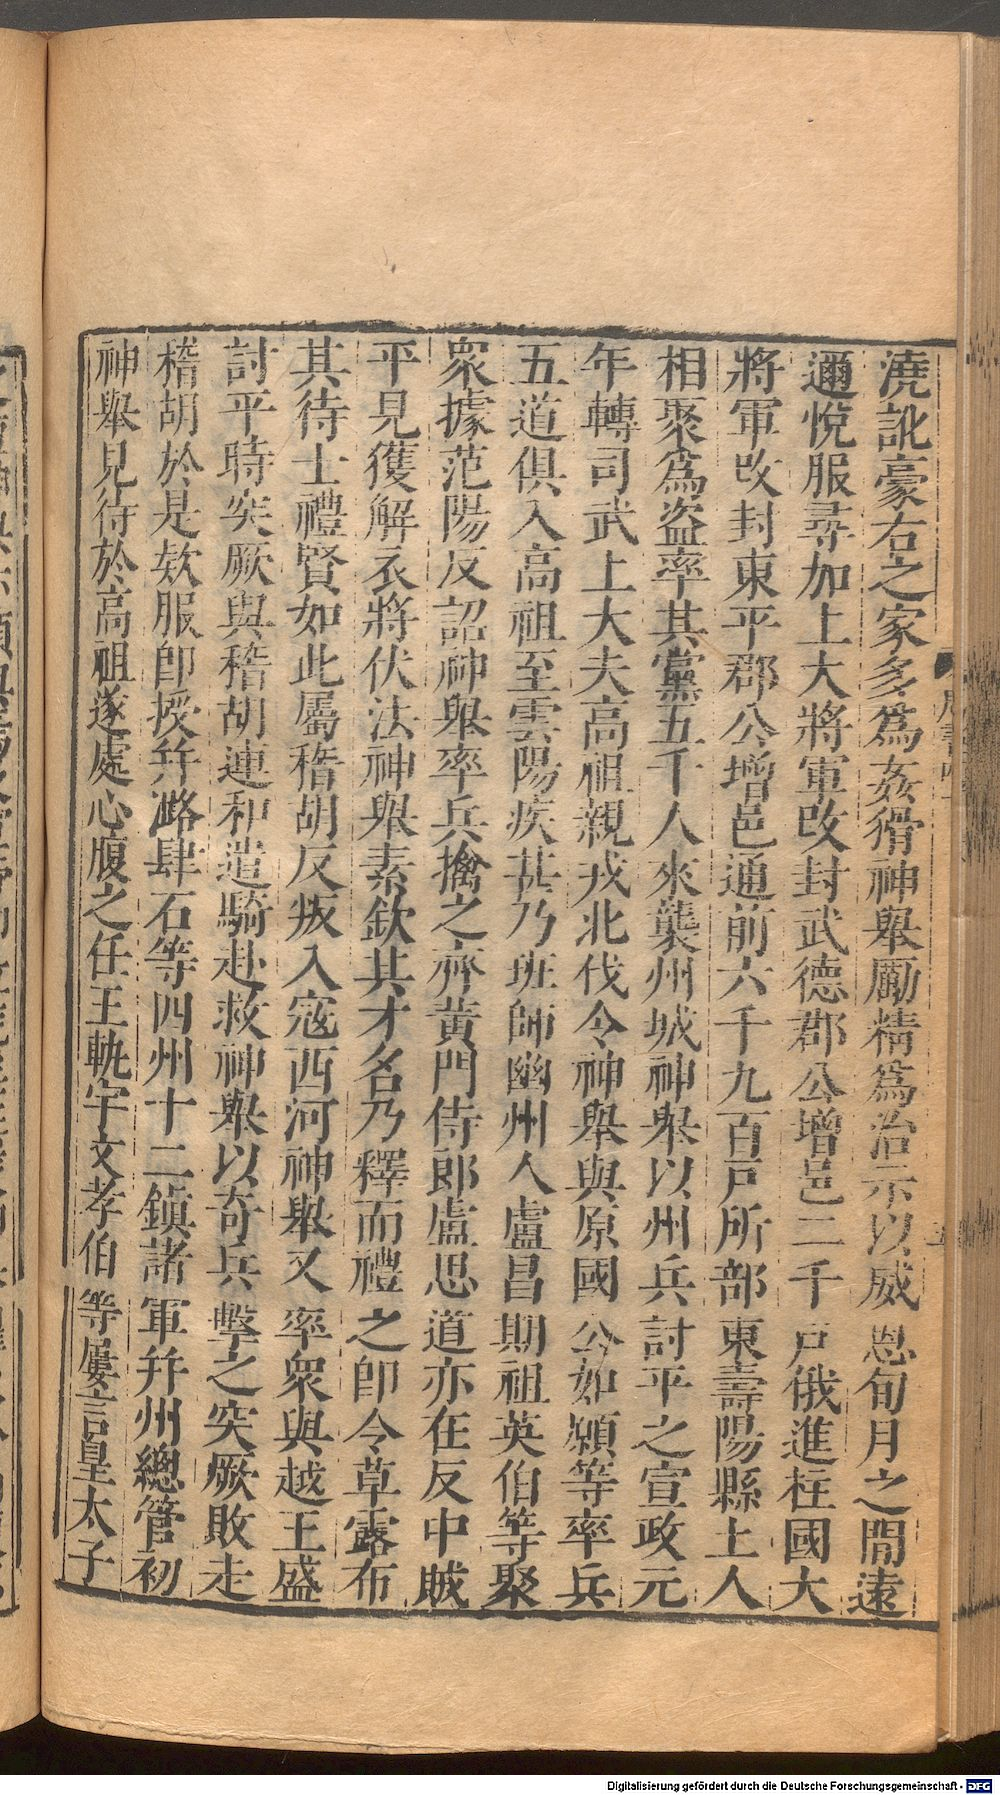 澆訛豪右之家多為姦猾神舉勵精為治示以威恩旬月之閒遠
邇悅服尋加上大將軍改封武德郡公增邑二千戶俄進柱國大
將軍改封東平郡公增邑通前六千九百戶所部東壽陽縣土人
相聚為盜率其黨五千人來襲州城神舉以州兵討平之宣政元
年轉司武上大夫高祖親戎北伐令神舉與原國公如願等率兵
五道俱入高祖至雲陽疾甚乃班師幽州人盧昌期祖英伯等聚
眾據范陽反詔神舉率兵擒之齊黃門侍郎盧思道亦在反中賊
平見獲解衣將伏法神舉素欽其才名乃釋而禮之即令草露布
其待士禮賢如此屬稽胡反叛入寇西河神舉又率眾與越王盛
討平時突厥與稽胡連和遣騎赴救神舉以奇兵擊之突厥敗走
稽胡於是欵服即授并潞肆石等四州十二鎮諸軍并州總管初
神舉見待於高祖遂處心腹之任王軌宇文孝伯等屢言皇太子
Digitalisierung gefördert durch die Deutsche Forschungsgemeinschaft - DFG